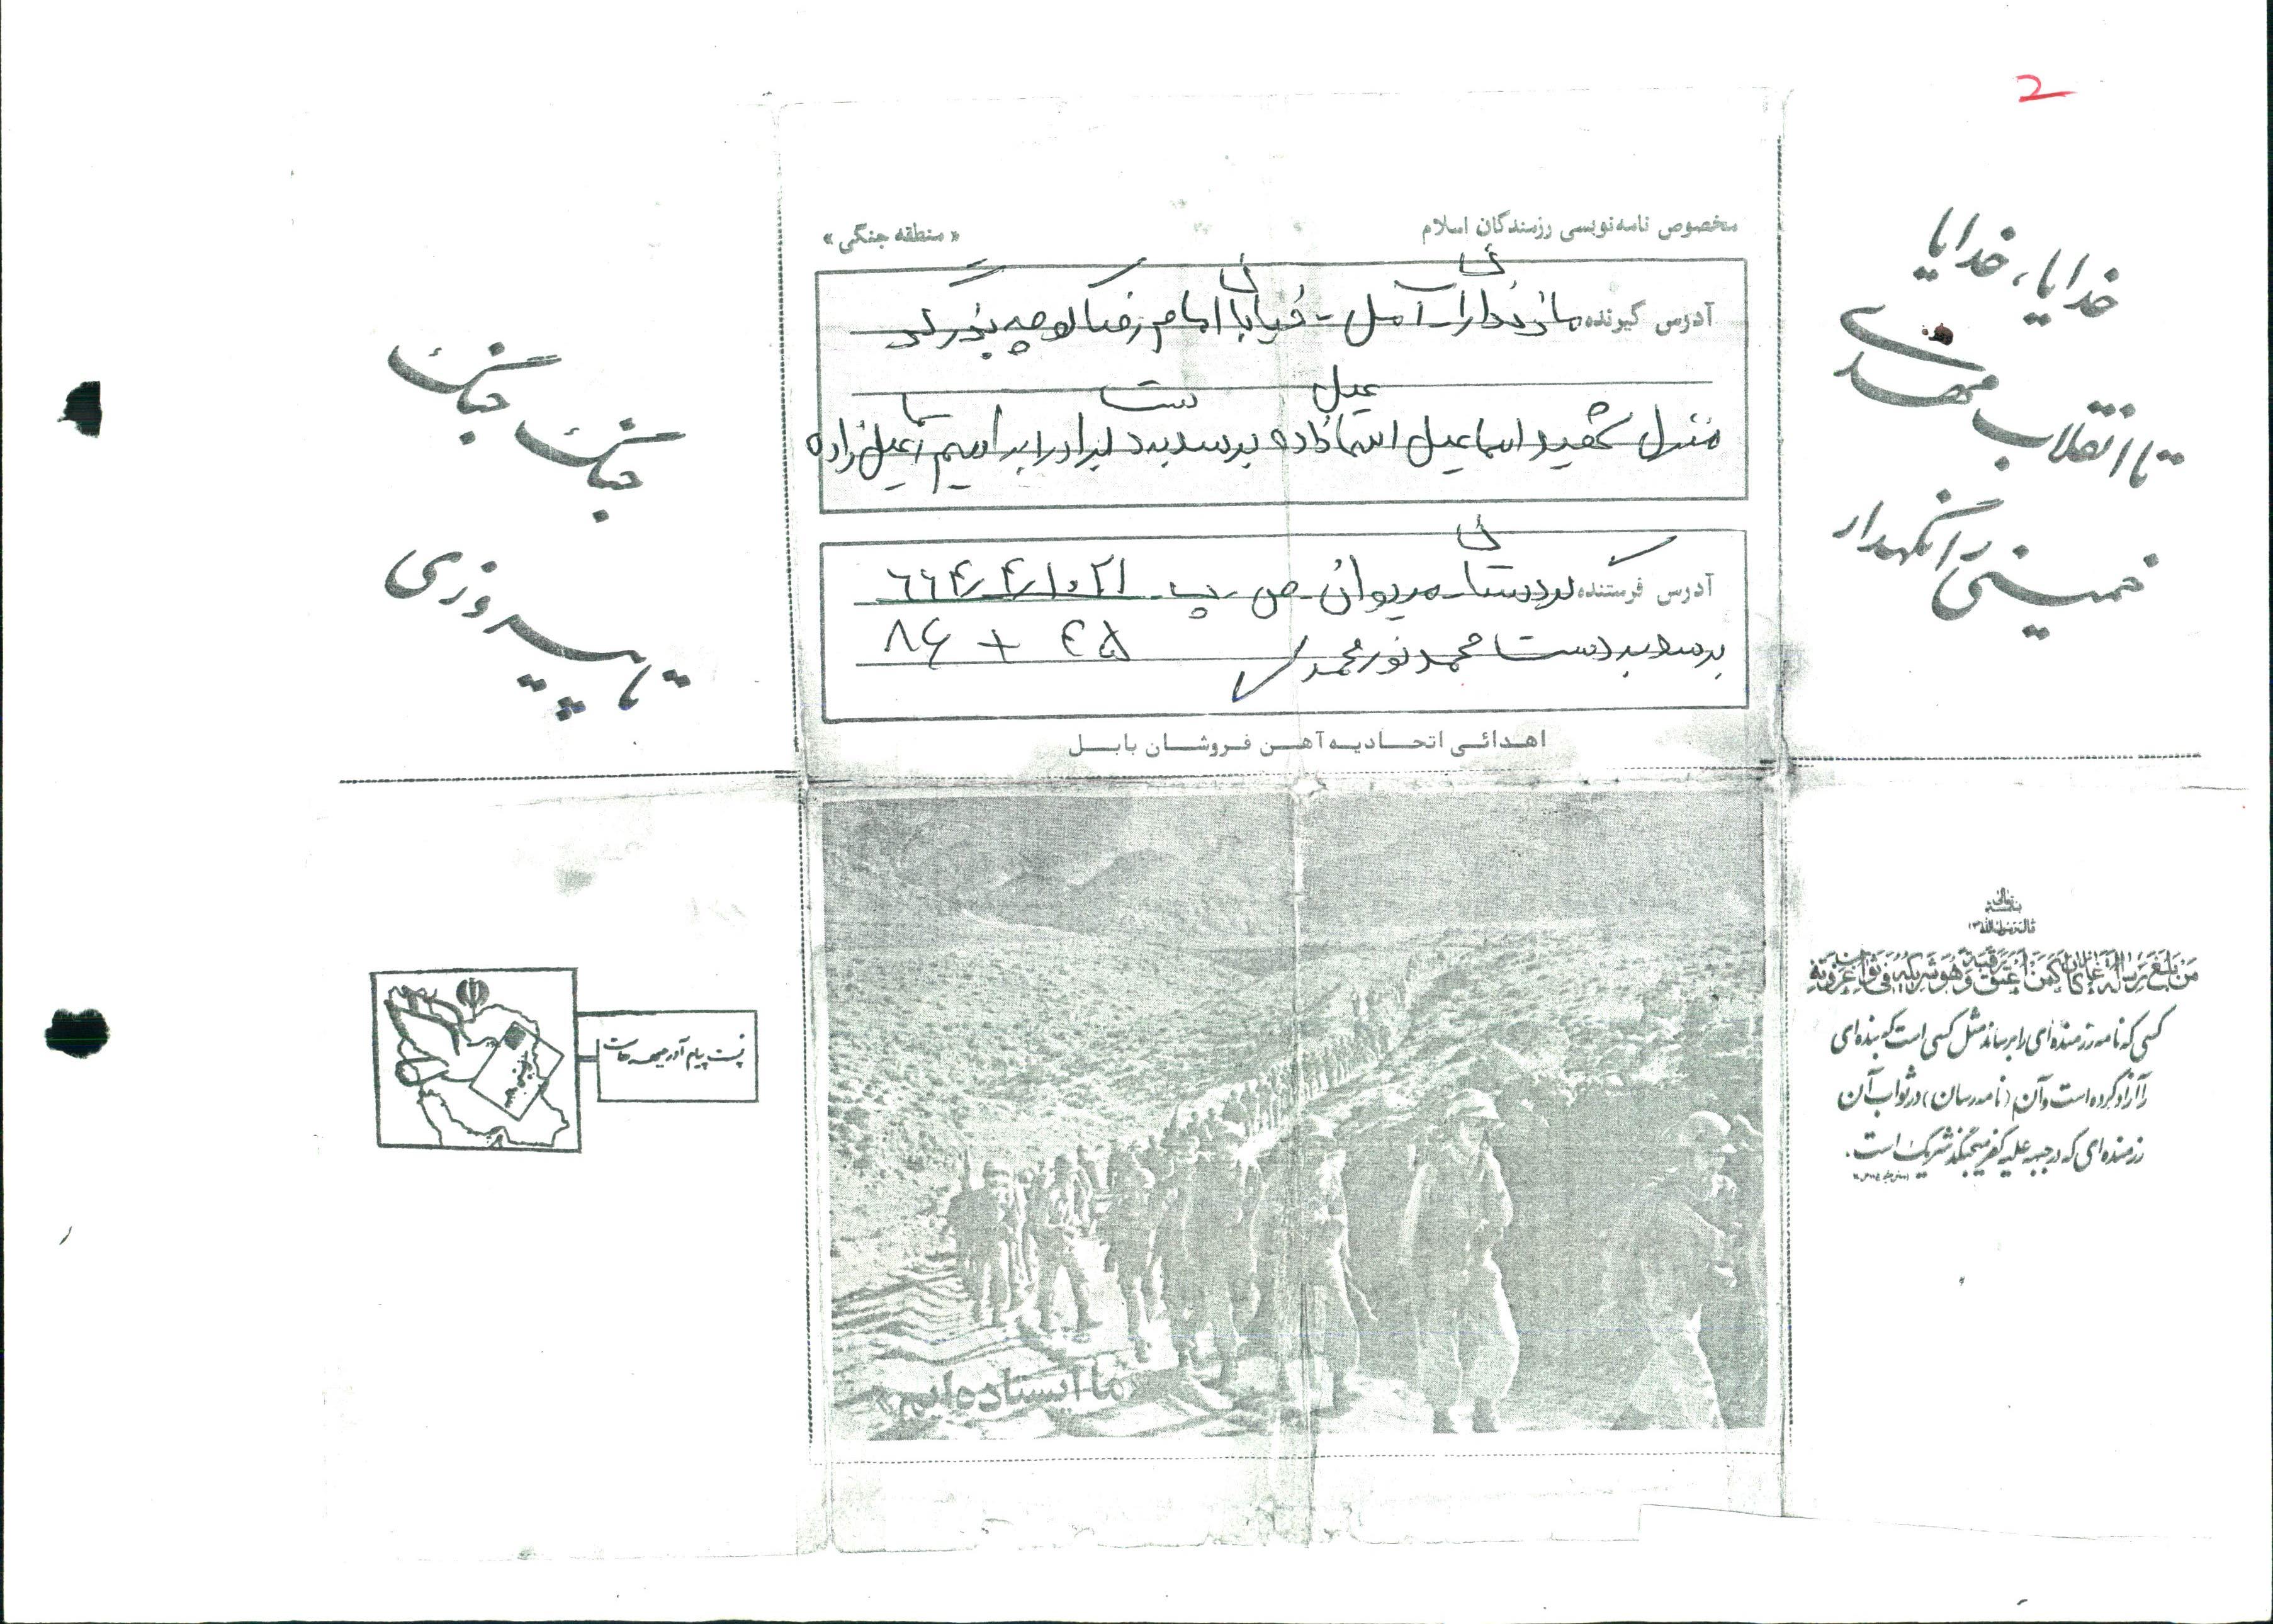 2
خدایا، خدایا
تا انقلاب مهدی
خمینی را نگهدار
مخصوص نامه‌نویسی رزمندگان اسلام
« منطقه جنگی »
آدرس گیرنده مازندران آمل - خیابان امام رضا کوچه
منزل شهید اسماعیل اسماعیل زاده برسد بدست برادر ابراهیم اسماعیل زاده
آدرس فرستنده کردستان - مریوان - ص - پ -
برسد بدست محمد نورمحمدی
اهدائی اتحادیه آهن فروشان بابل
جنگ جنگ
تا پیروزی
ما ایستاده‌ایم
پست پیام آور
قال رسول الله
من بلغ رسالة غاز کان کمن اعتق رقبة وهو شریکه فی ثواب غزوته
کسی که نامه رزمنده‌ای را برساند مثل کسی است که بنده‌ای
را آزاد کرده است و آن (نامه رسان) در ثواب آن
رزمنده‌ای که در جبهه علیه کفر میجنگد شریک است.